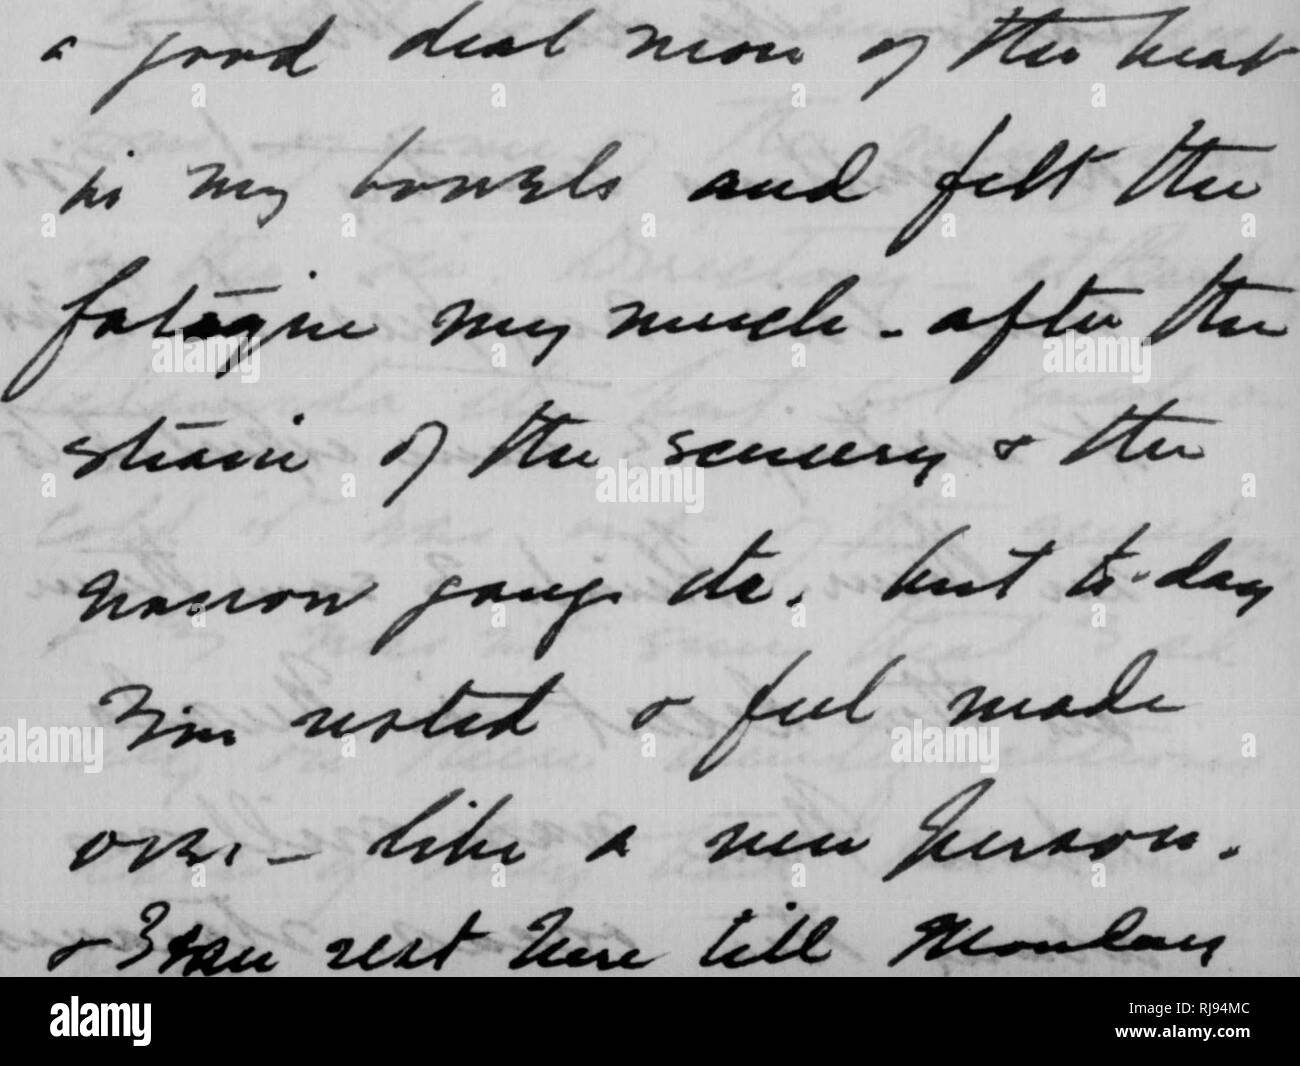 a good deal more of the heat
in my bowels and felt the
fatigue my much - after the
strain of the scenery & the
narrow gauge etc. but to-day
I'm rested & feel made
over - like a new person.
& I can rest here till Monday
alamy
www.alamy.com
Image ID: RJ94MC